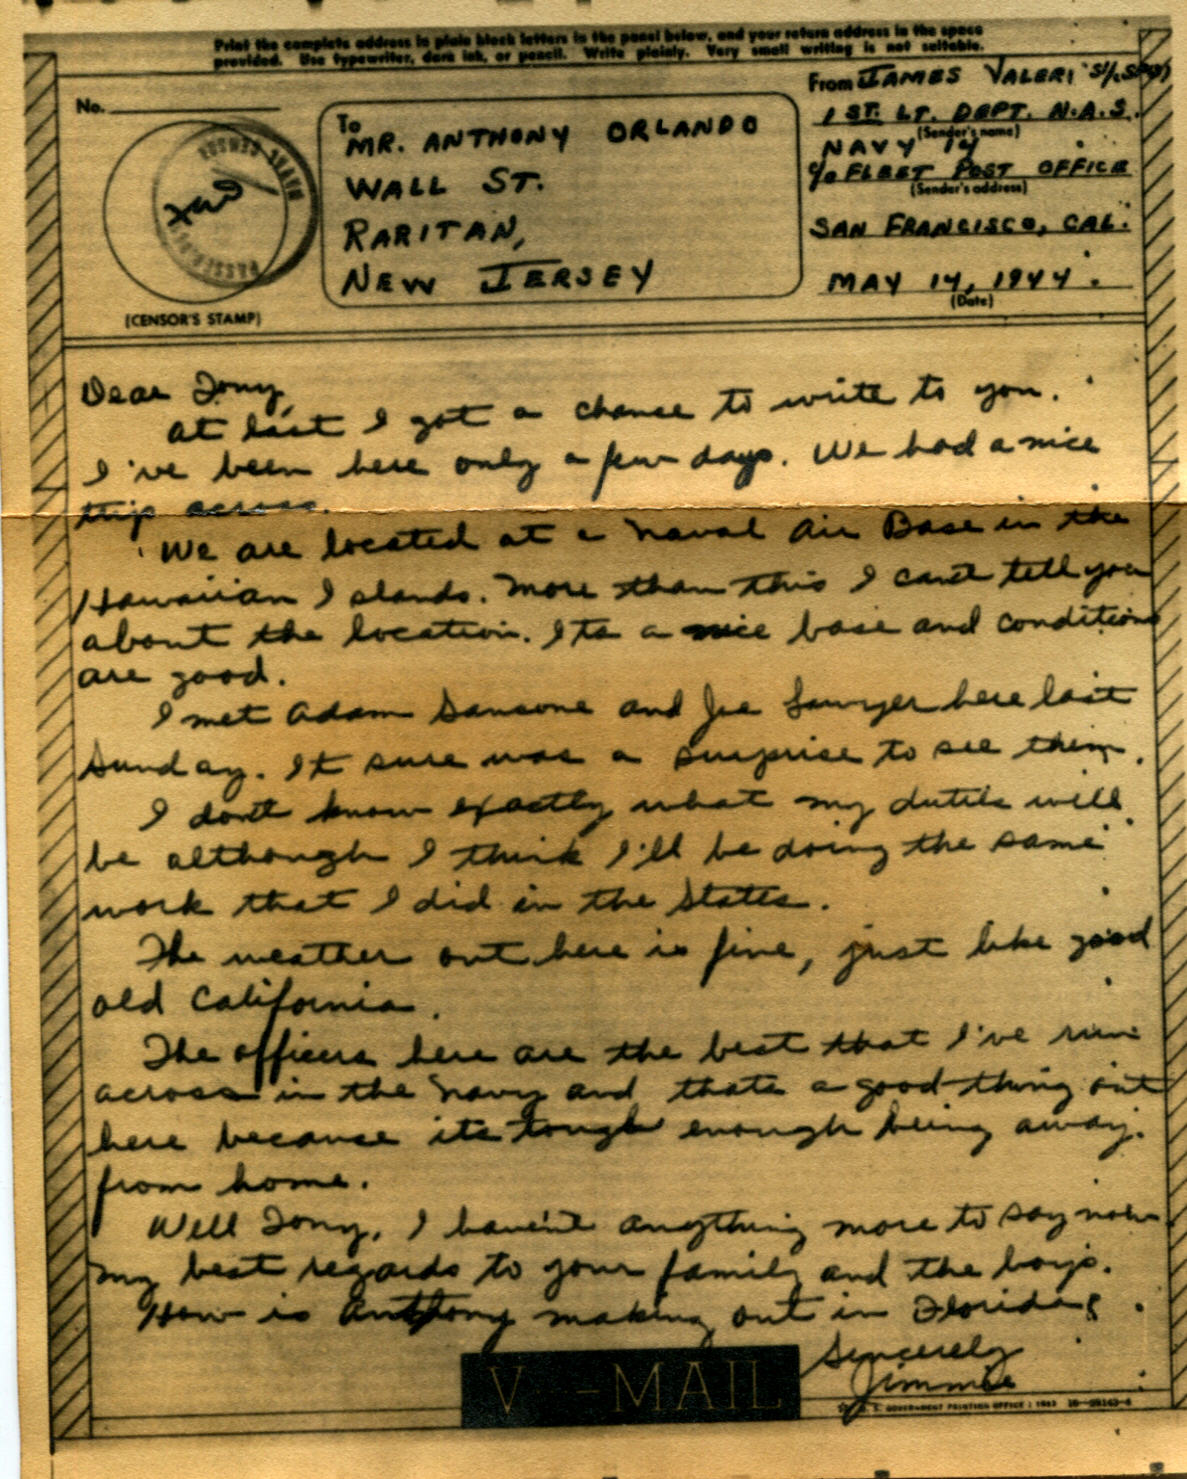 Print the complete address in plain block letters in the panel below, and your return address in the space
provided. Use typewriter, dark ink, or pencil. Write plainly. Very small writing is not suitable.
No.
To
MR. ANTHONY ORLANDO
WALL ST.
RARITAN,
NEW JERSEY
From JAMES VALERI S1/c
1ST. LT. DEPT. N.A.S.
(Sender's name)
NAVY 14
c/o FLEET POST OFFICE
(Sender's address)
SAN FRANCISCO, CAL.
MAY 14, 1944.
(Date)
PASSED BY
NAVAL CENSOR
(CENSOR'S STAMP)
Dear Tony,
At last I got a chance to write to you.
I've been here only a few days. We had a nice
trip across.
We are located at a Naval Air Base in the
Hawaiian Islands. More than this I can't tell you
about the location. Its a nice base and conditions
are good.
I met Adam Sansone and Joe Sawyer here last
Sunday. It sure was a surprise to see them.
I don't know exactly what my duties will
be although I think I'll be doing the same
work that I did in the States.
The weather out here is fine, just like good
old California.
The officers here are the best that I've run
across in the Navy and thats a good thing out
here because its tough enough being away
from home.
Well Tony, I haven't anything more to say now
my best regards to your family and the boys.
How is Anthony making out in Florida?
Sincerely
Jimmie
V-MAIL
U. S. GOVERNMENT PRINTING OFFICE : 1943